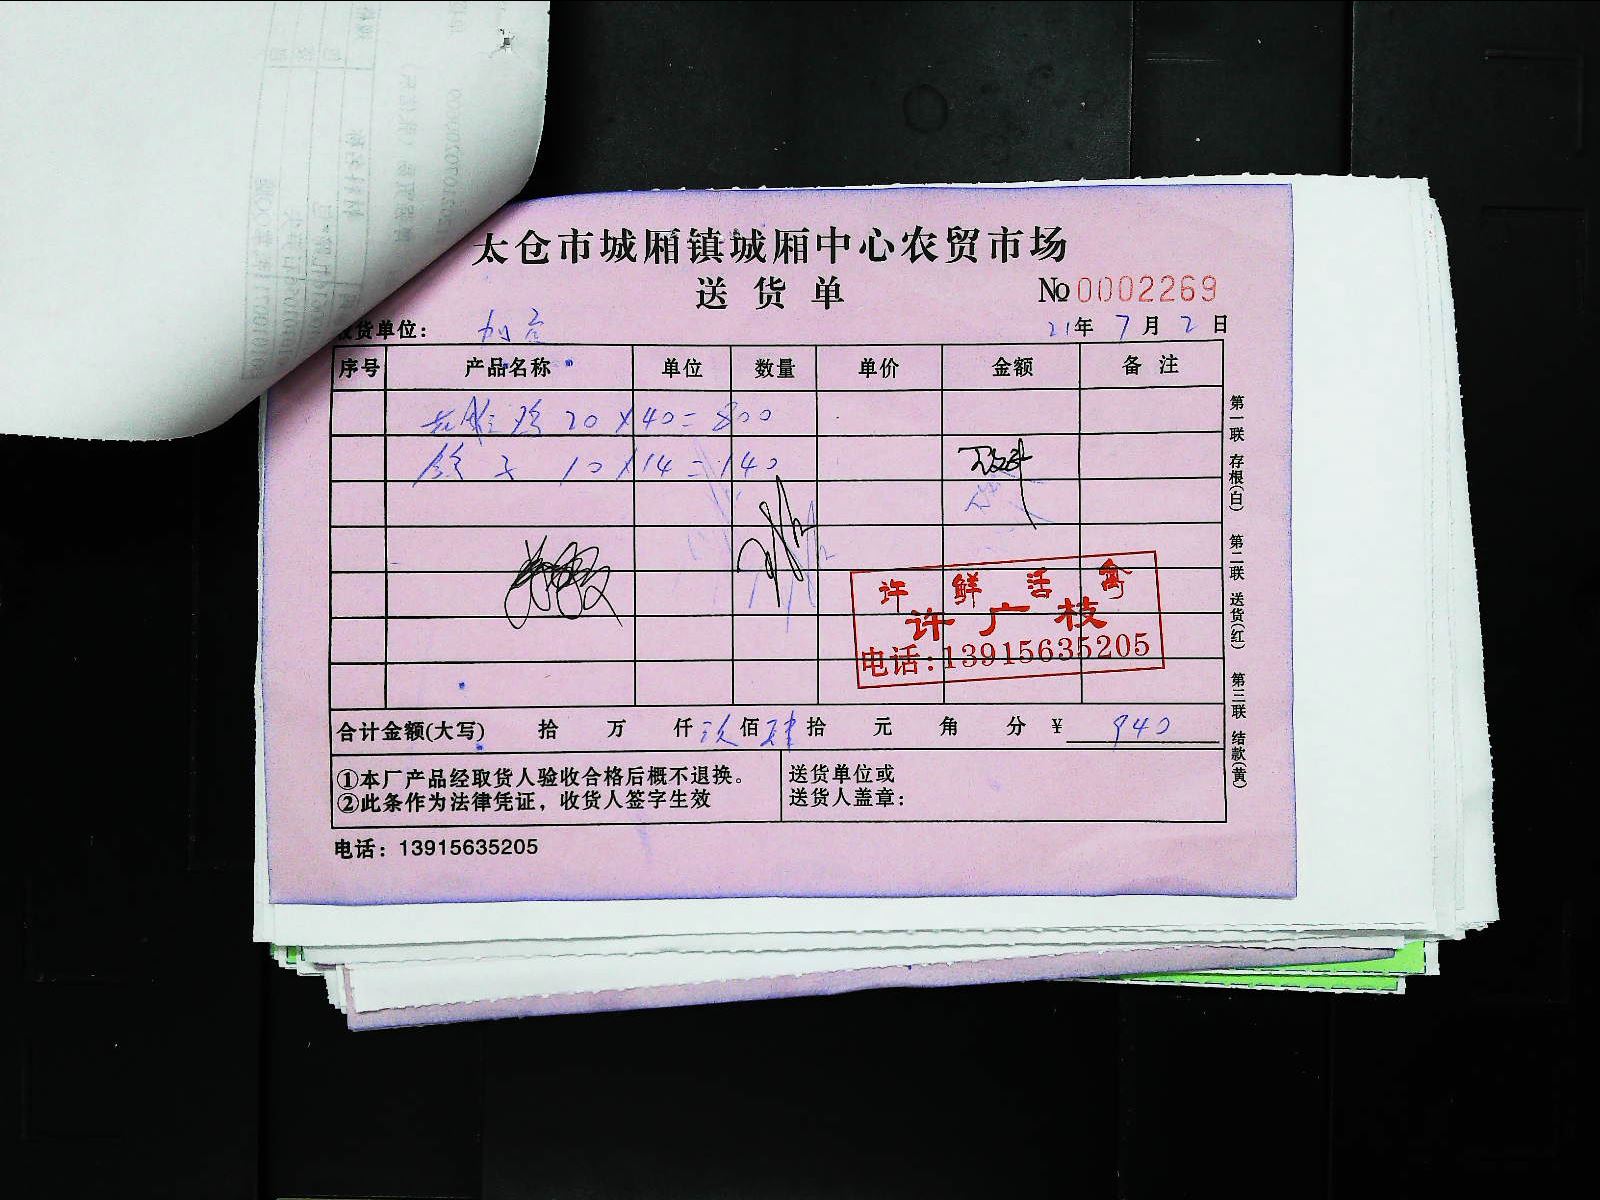 太仓市城厢镇城厢中心农贸市场
送货单
№0002269
收货单位：
21年7月2日
序号 产品名称 单位 数量 单价 金额 备注
鸡 20×40=800
子 10×14=140
许鲜活禽
许广枝
电话:13915635205
合计金额(大写) 拾 万 仟 玖佰肆拾 元 角 分 ¥ 940
①本厂产品经取货人验收合格后概不退换。
②此条作为法律凭证，收货人签字生效
送货单位或
送货人盖章：
电话：13915635205
第一联 存根(白) 第二联 送货(红) 第三联 结款(黄)